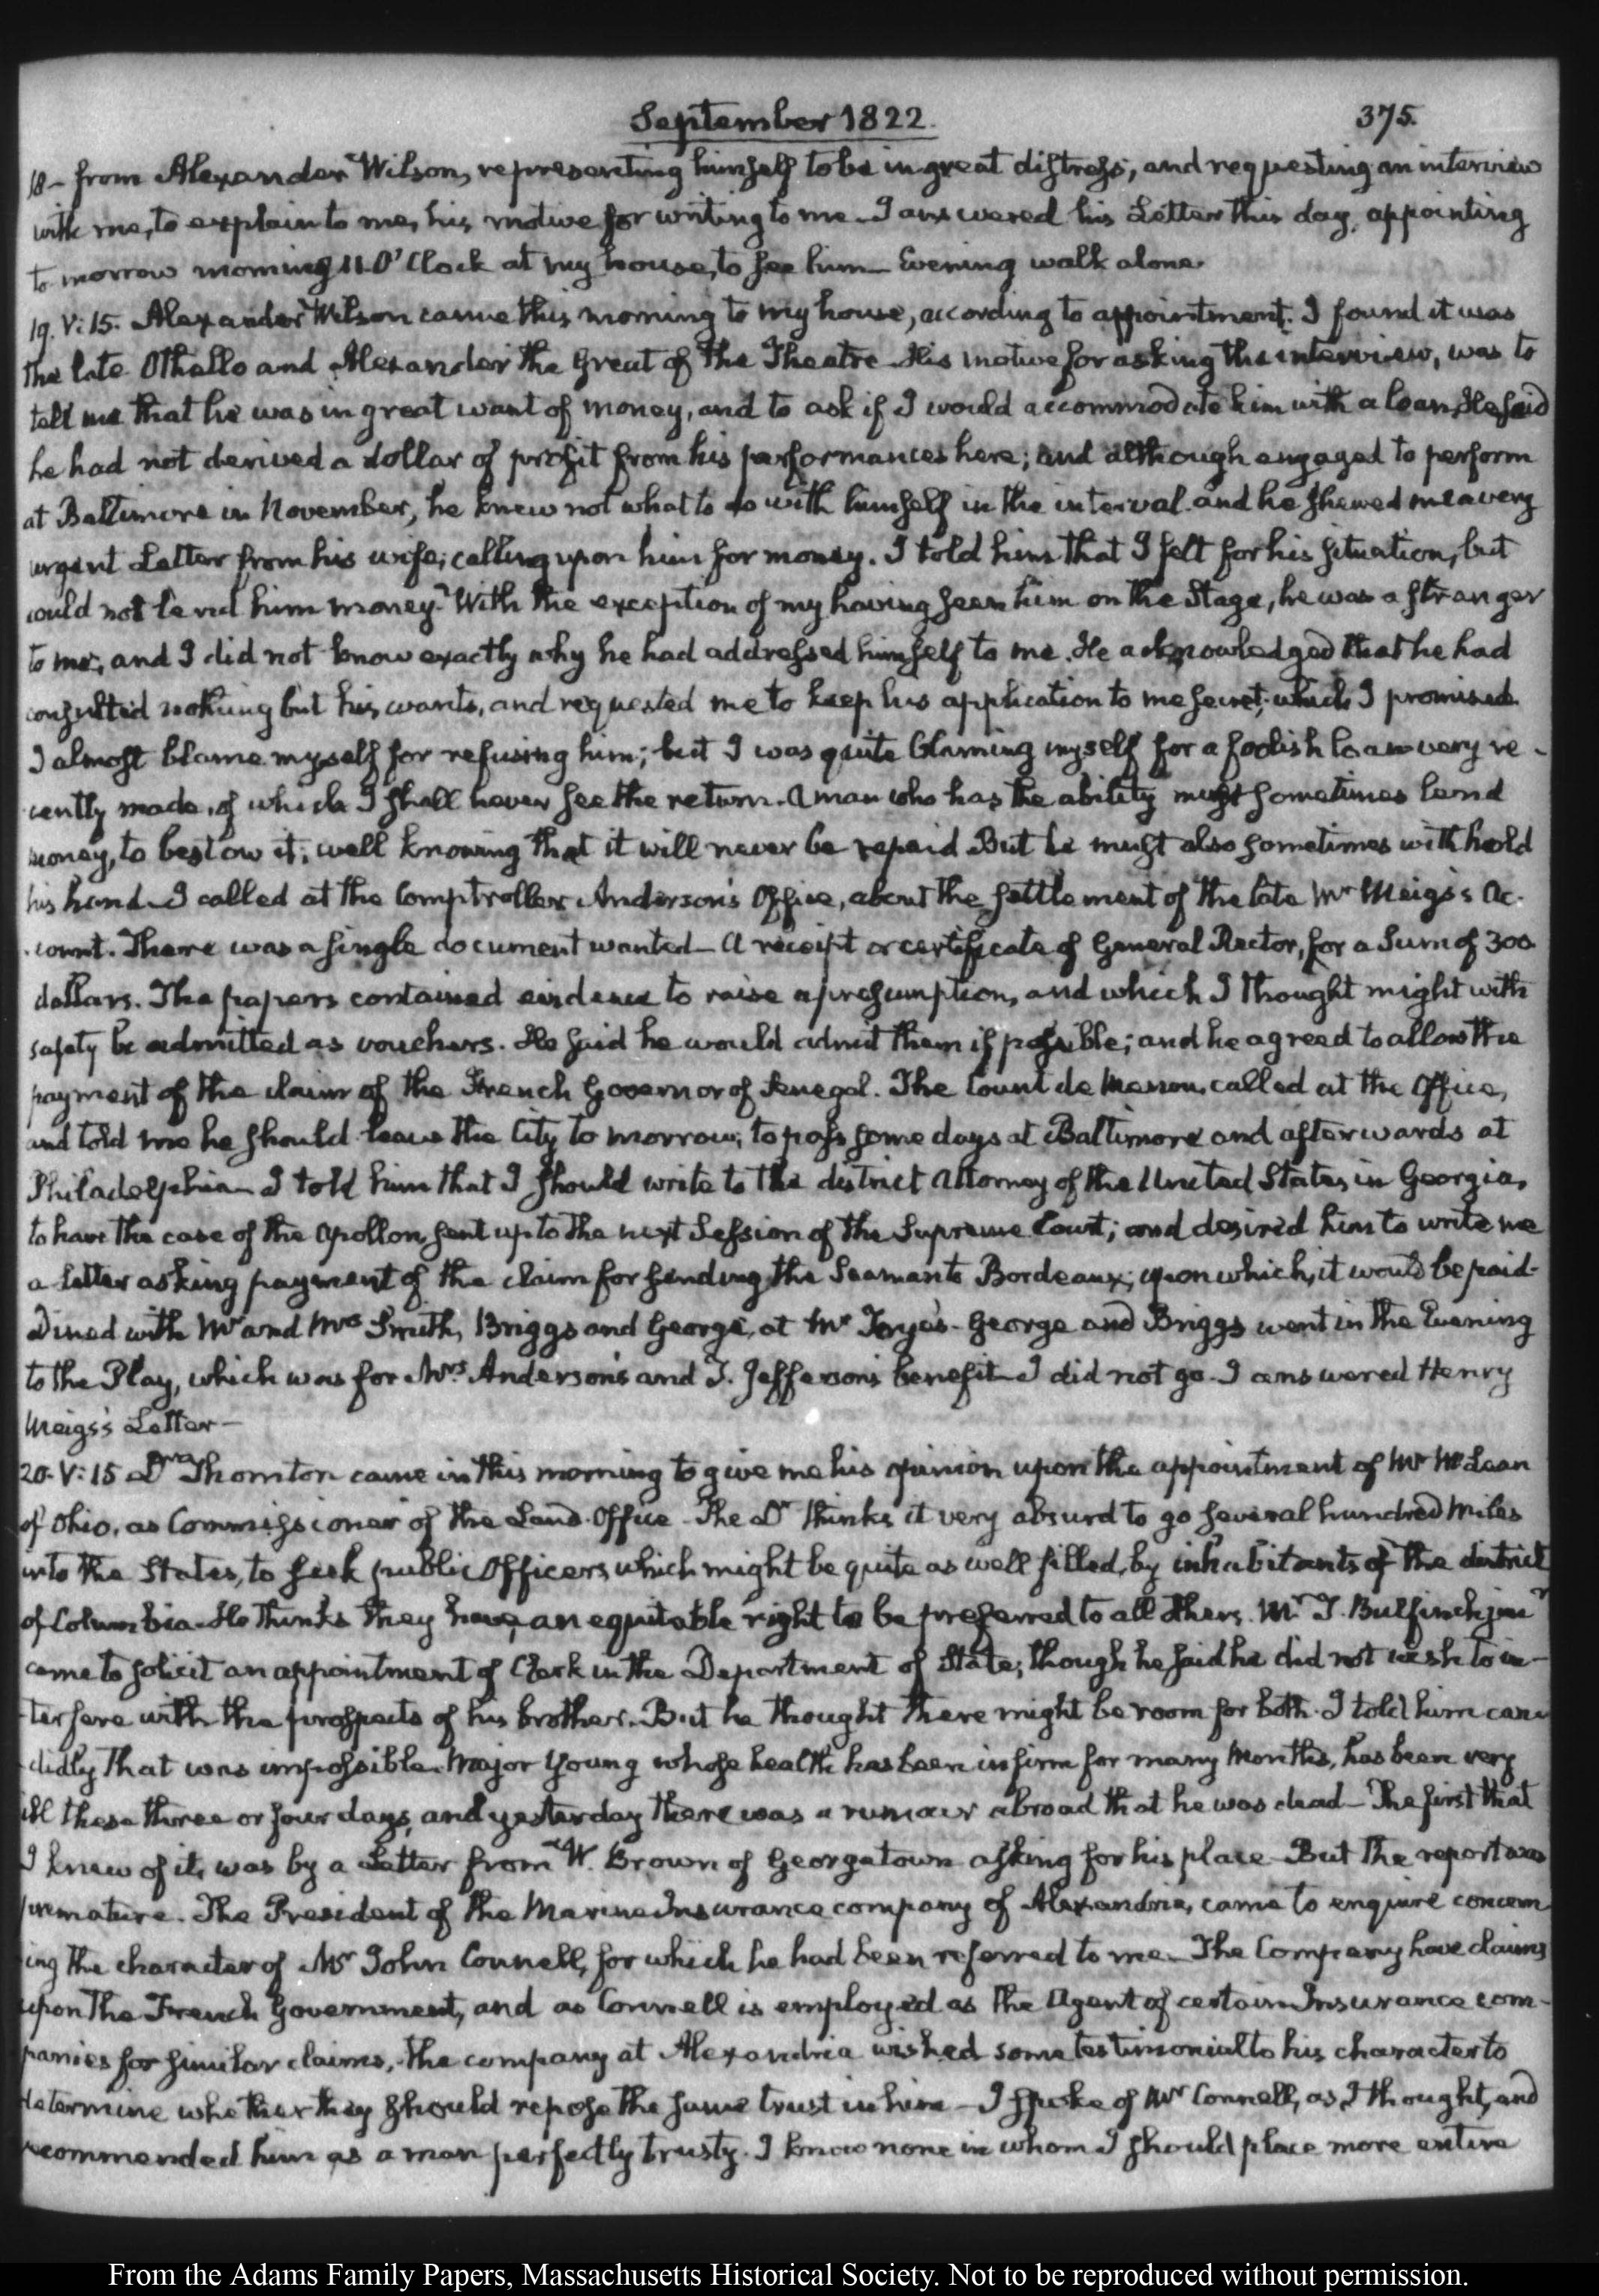 September 1822.
375.
18- from Alexander Wilson, representing himself to be in great distress, and requesting an interview
with me, to explain to me, his motive for writing to me. I answered his Letter this day, appointing
to morrow morning 11. O'Clock at my house, to see him- Evening walk alone.
19. V:15. Alexander Wilson came this morning to my house, according to appointment. I found it was
the late Othello and Alexander the Great of the Theatre. His motive for asking the interview, was to
tell me that he was in great want of money, and to ask if I would accommodate him with a loan, He said
he had not derived a dollar of profit from his performances here; and although engaged to perform
at Baltimore in November, he knew not what to do with himself in the interval. and he shewed me a very
urgent Letter from his wife, calling upon him for money. I told him that I felt for his situation, but
could not lend him money. With the exception of my having seen him on the Stage, he was a stranger
to me; and I did not know exactly why he had addressed himself to me. He acknowledged that he had
consulted nothing but his wants, and requested me to keep his application to me secret; which I promised.
I almost blame myself for refusing him; but I was quite blaming myself for a foolish loan very re-
cently made, of which I shall never see the return. A man who has the ability must sometimes lend
money, to bestow it; well knowing that it will never be repaid But he must also sometimes withhold
his hand. I called at the Comptroller Anderson's Office, about the settlement of the late Mr Meigs's Ac-
count. There was a single document wanted- A receipt or certificate of General Rector, for a Sum of 300
dollars. The papers contained evidence to raise a presumption, and which I thought might with
safety be admitted as vouchers. He said he would admit them if possible; and he agreed to allow the
payment of the claim of the French Governor of Senegal. The Count de Menou, called at the Office,
and told me he should leave the City to morrow; to pass some days at Baltimore and afterwards at
Philadelphia- I told him that I should write to the district Attorney of the United States, in Georgia,
to have the case of the Apollon, sent up to the next Session of the Supreme Court; and desired him to write me
a letter asking payment of the claim for sending the Seaman to Bordeaux; upon which, it would be paid-
Dined with Mr and Mrs Smith, Briggs and George, at Mr Frye's- George and Briggs went in the Evening
to the Play, which was for Mrs. Anderson's and J. Jefferson's benefit- I did not go. I answered Henry
Meigs's Letter-
20. V:15 Dr Thornton came in this morning to give me his opinion upon the appointment of Mr McLean
of Ohio, as Commissioner of the Land-Office- The Dr thinks it very absurd to go several hundred Miles
into the States, to seek public Officers, which might be quite as well filled, by inhabitants of the district
of Columbia- He thinks they have, an equitable right to be preferred to all others. Mr. T. Bulfinch junr
came to solicit an appointment of Clerk in the Department of State; though he said he did not wish to in-
-terfere with the prospects of his brother. But he thought there might be room for both. I told him can-
-didly that was impossible. Major Young whose health has been infirm for many Months, has been very
ill these three or four days, and yesterday there was a rumour abroad that he was dead- The first that
I knew of it, was by a Letter from W. Brown of Georgetown asking for his place- But the report was
premature. The President of the Marine Insurance company of Alexandria, came to enquire concern
ing the character of Mr John Connell, for which he had been referred to me- The Company have claims
upon the French Government, and as Connell is employed as the Agent of certain Insurance com-
panies for similar claims, the company at Alexandria wished some testimonial to his character to
determine whether they should repose the same trust in him- I spoke of Mr Connell, as I thought, and
recommended him as a man perfectly trusty. I know none in whom I should place more entire
From the Adams Family Papers, Massachusetts Historical Society. Not to be reproduced without permission.